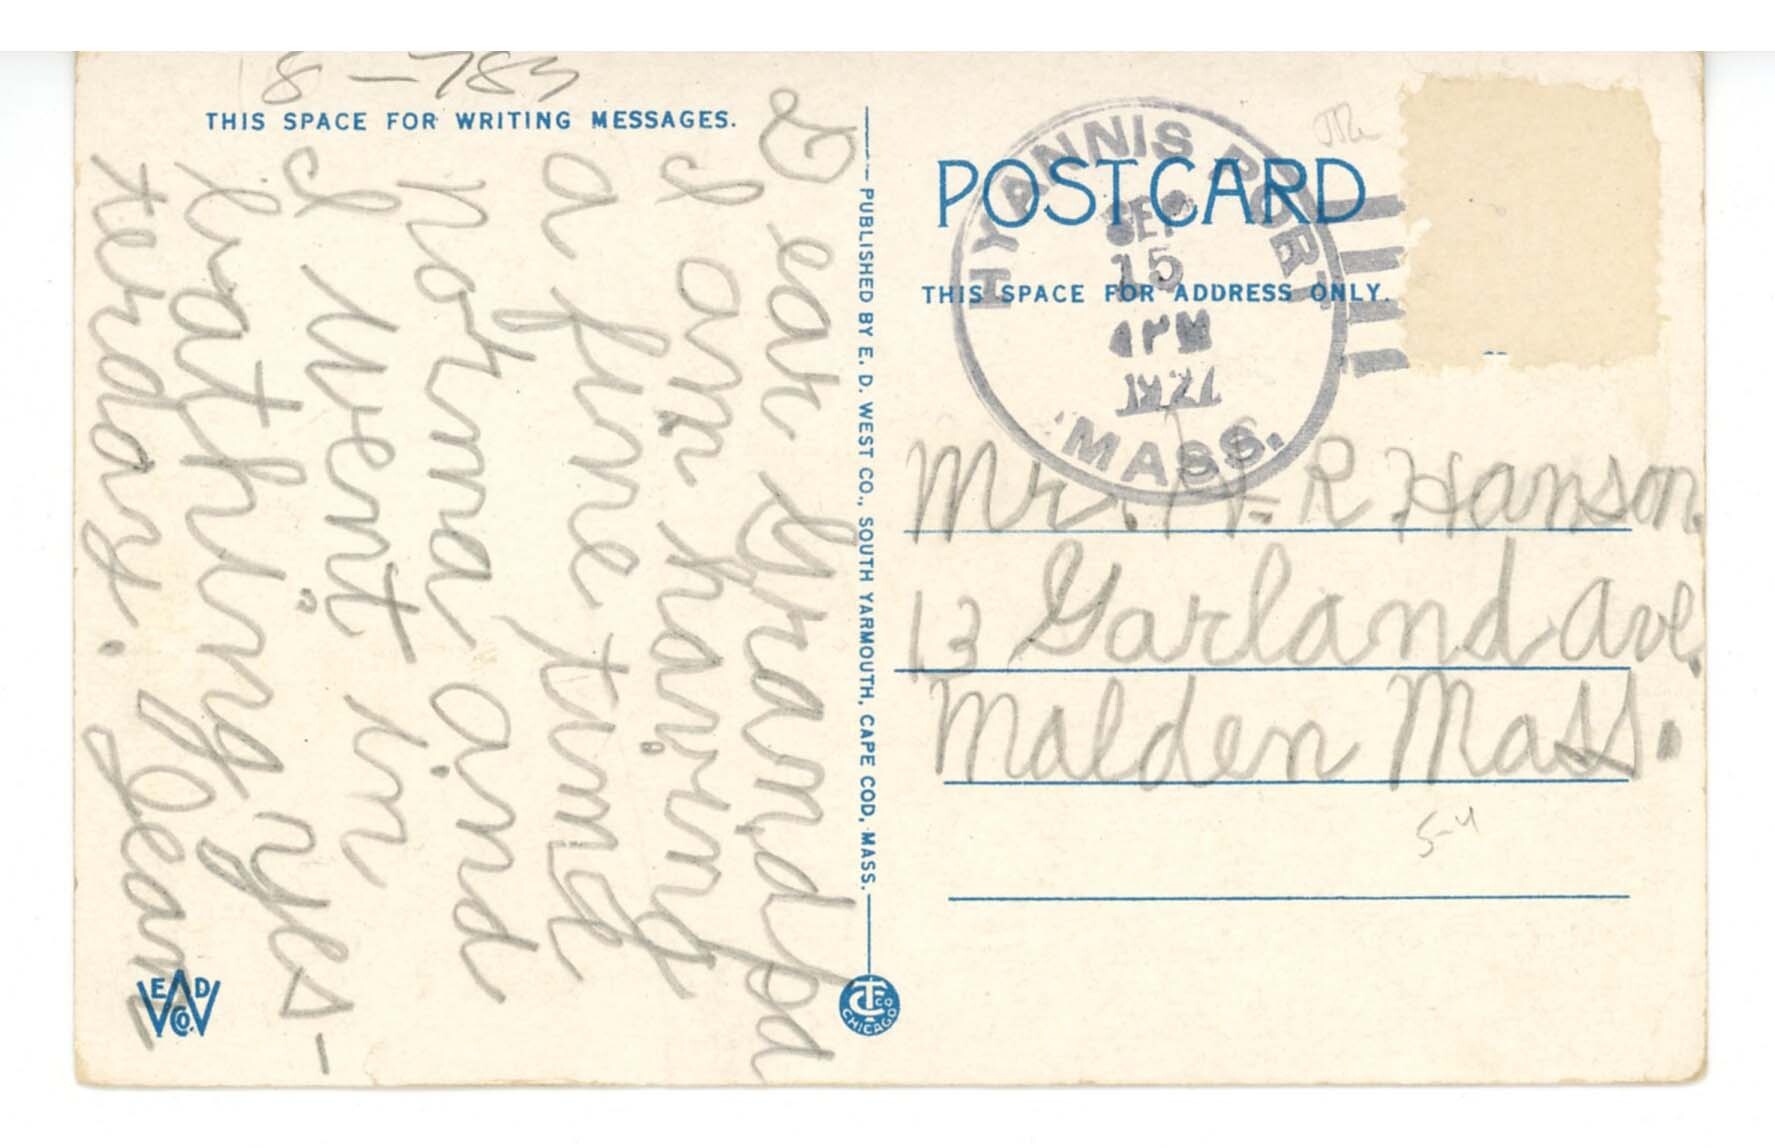 18-785
THIS SPACE FOR WRITING MESSAGES.
Dear Grandpa
I am having
a fine time
norma and
I went in
bathing yes-
terday.
Jean
E A D
W CO.
PUBLISHED BY E. D. WEST CO., SOUTH YARMOUTH, CAPE COD, MASS.
CT CO
CHICAGO
POSTCARD
THIS SPACE FOR ADDRESS ONLY.
HYANNIS PORT
SEP
15
4 PM
MASS.
Mr. H. R. Hanson.
13 Garland Ave.
Malden Mass.
5-4